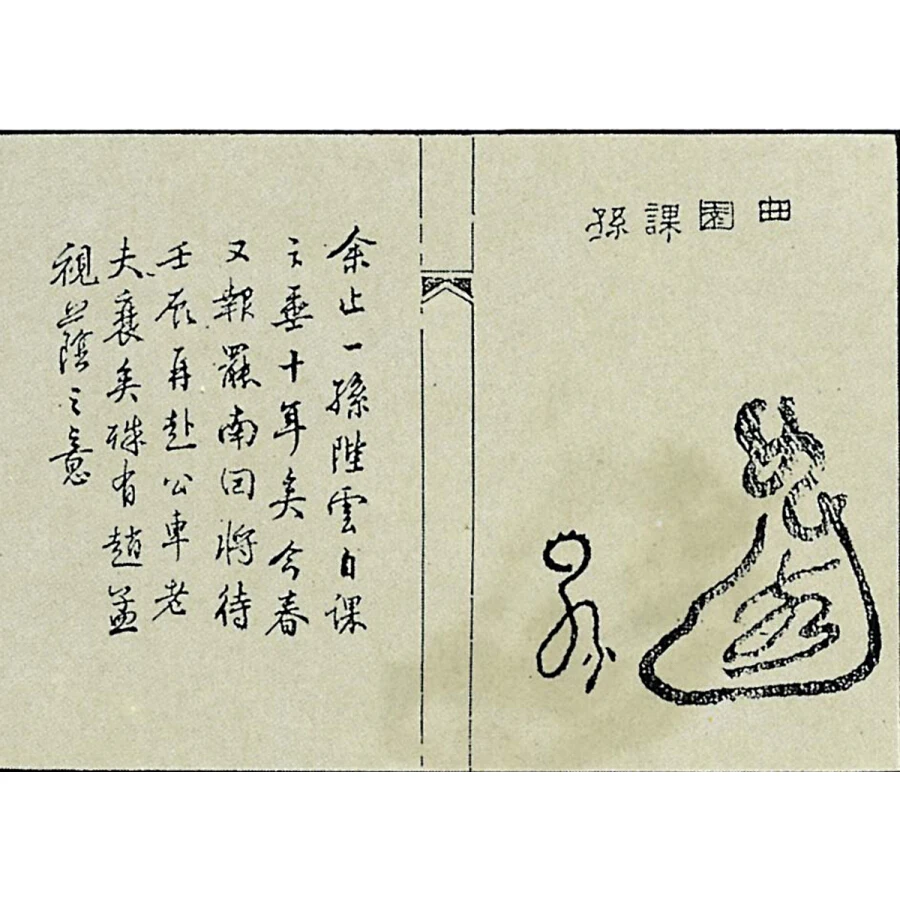 曲園課孫
余止一孫陛雲自課
之垂十年矣今春
又報罷南回將待
壬辰再赴公車老
夫襄矣殊有趙孟
視蔭之意